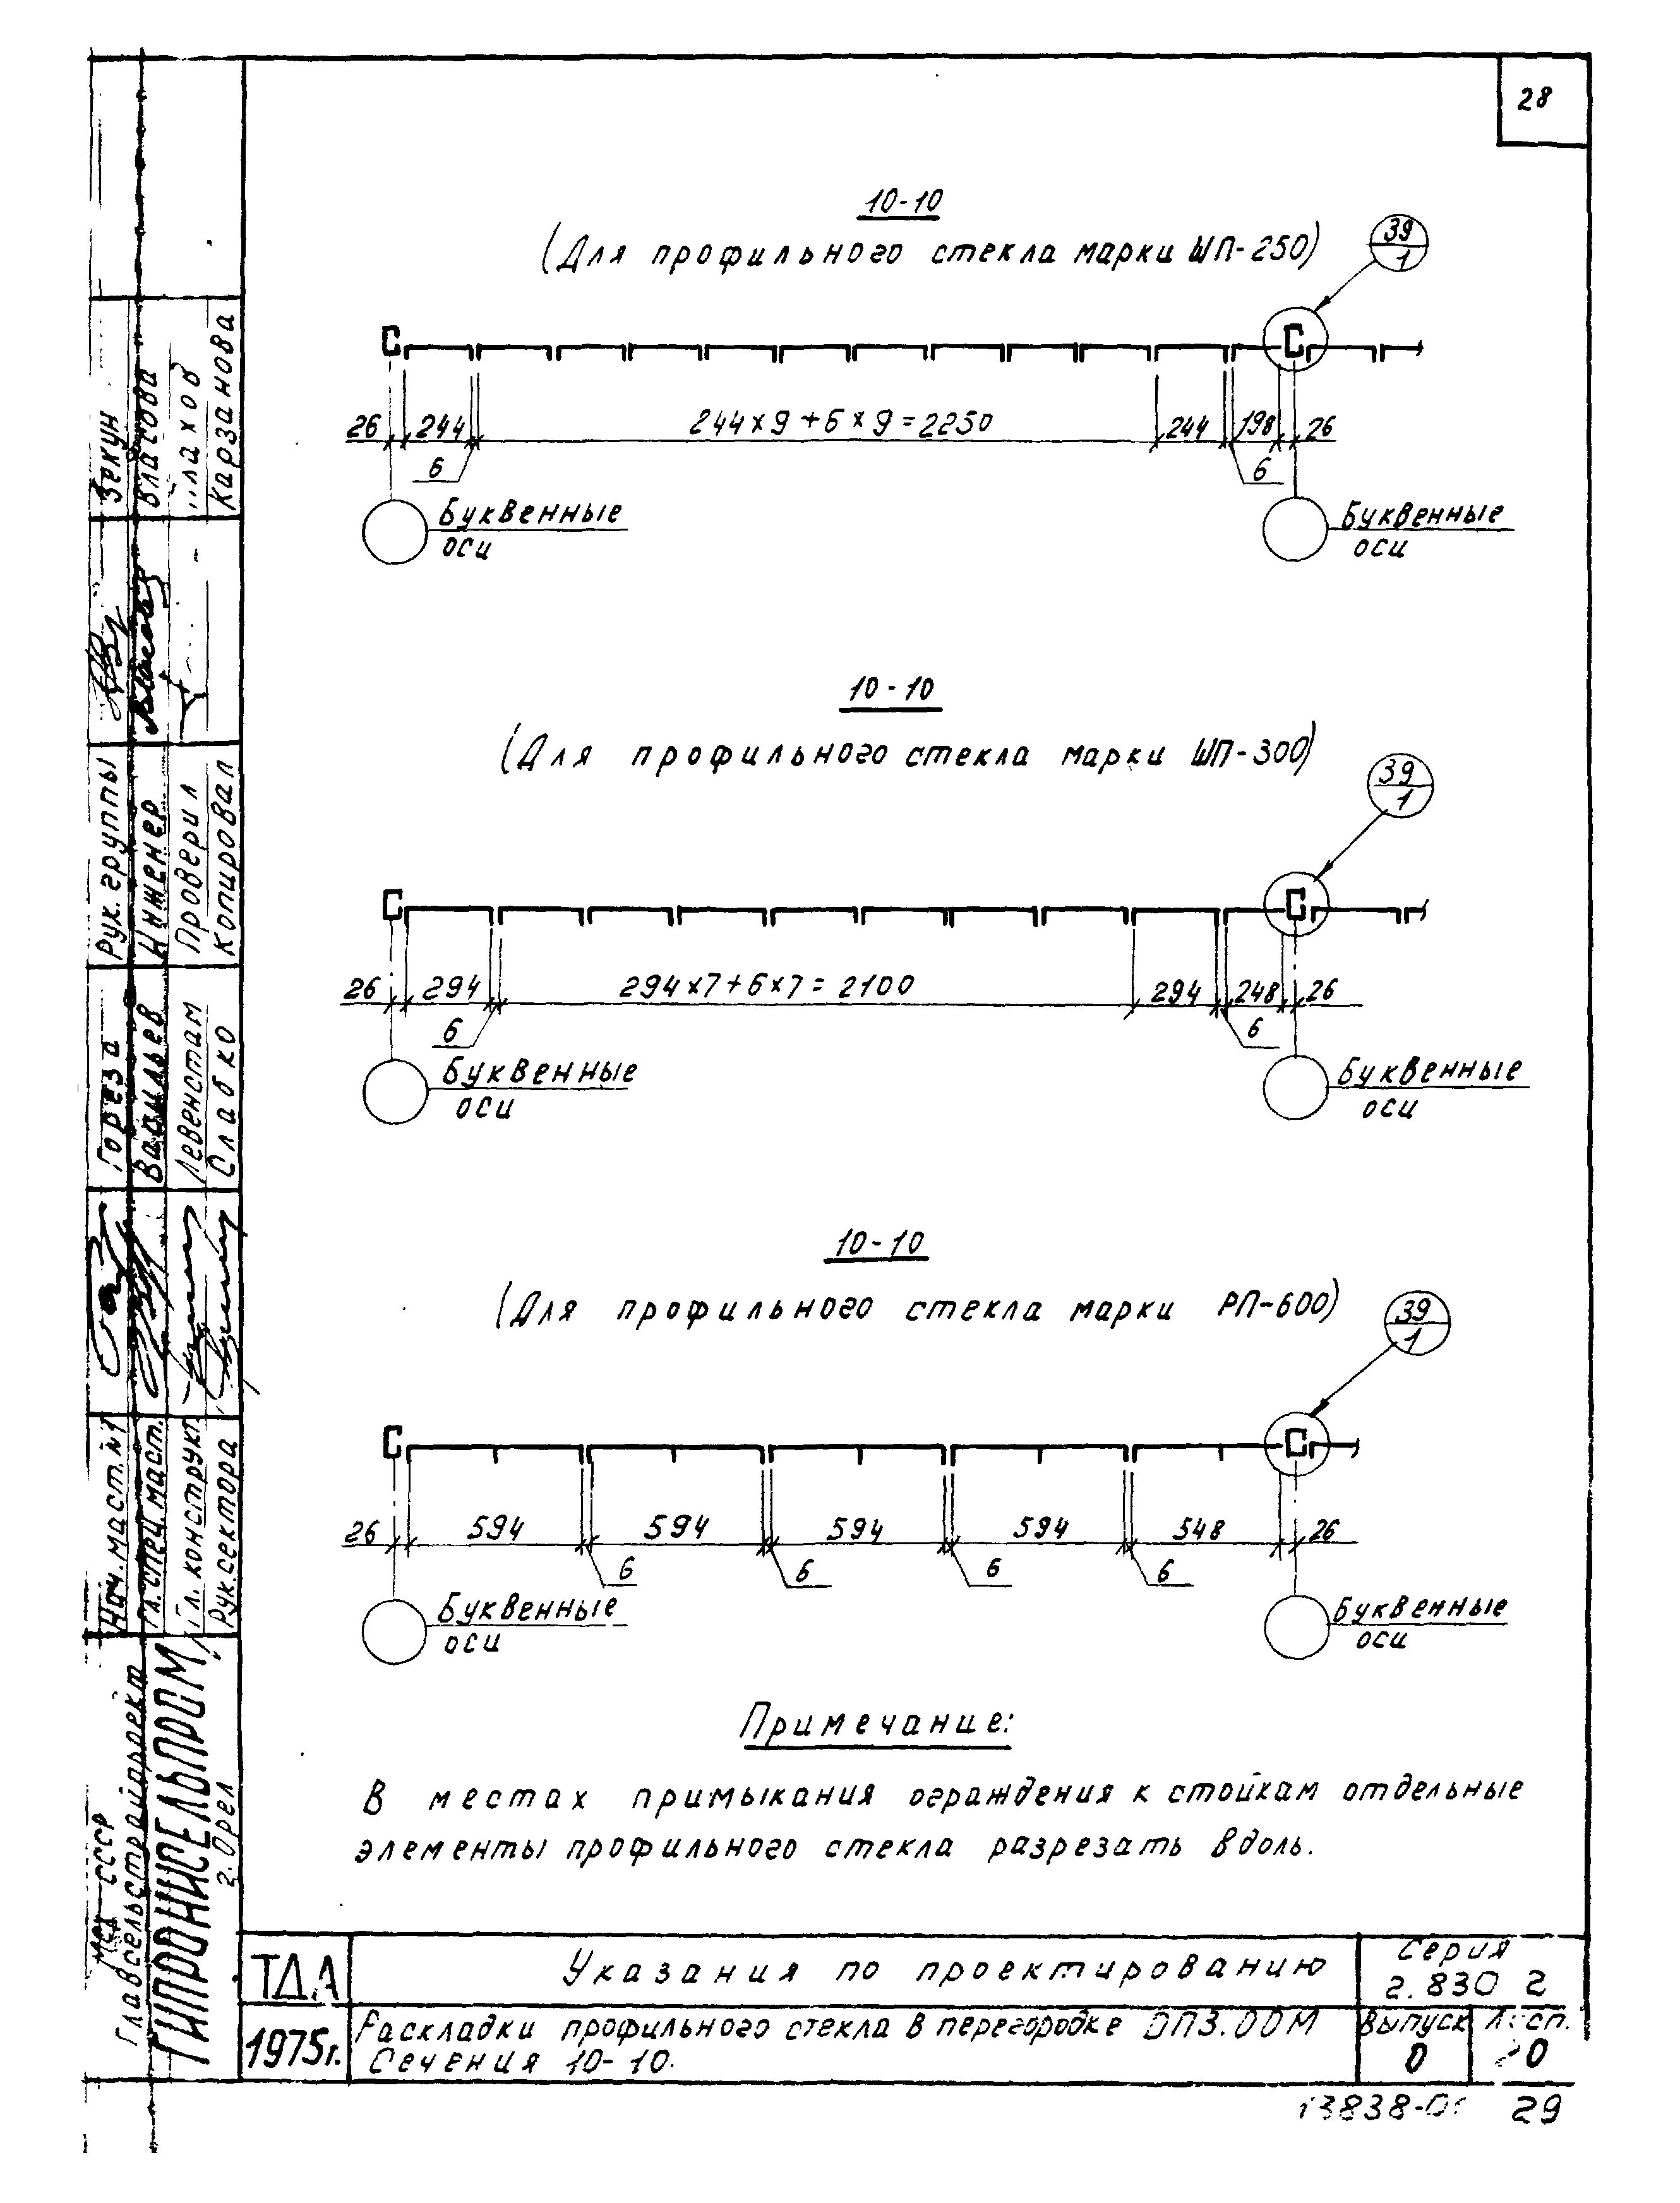 28
10-10
(Для профильного стекла марки ШП-250)
39
1
26 244 244×9+6×9=2250 244 198 26
6 6
Буквенные Буквенные
оси оси
10-10
(Для профильного стекла марки ШП-300)
39
1
26 294 294×7+6×7=2100 294 248 26
6 6
Буквенные Буквенные
оси оси
10-10
(Для профильного стекла марки РП-600)
39
1
26 594 594 594 594 548 26
6 6 6 6
Буквенные Буквенные
оси оси
Примечание:
В местах примыкания ограждения к стойкам отдельные
элементы профильного стекла разрезать вдоль.
ТДА
Указания по проектированию
Серия
2.830 2
1975г.
Раскладки профильного стекла в перегородке ОПЗ.00М
Сечения 10-10.
Выпуск
0
Лист.
20
29
Зекун
Власова
Карзанова
Рук. группы
Инженер
Проверил
Копировал
Гореза
Васильев
Левенстам
Слабко
Нач.маст.№1
Гл.спец.маст.
Гл. конструкт
Рук.сектора
СССР
Главсельстройпроект
ГИПРОНИСЕЛЬПРОМ
г. Орел